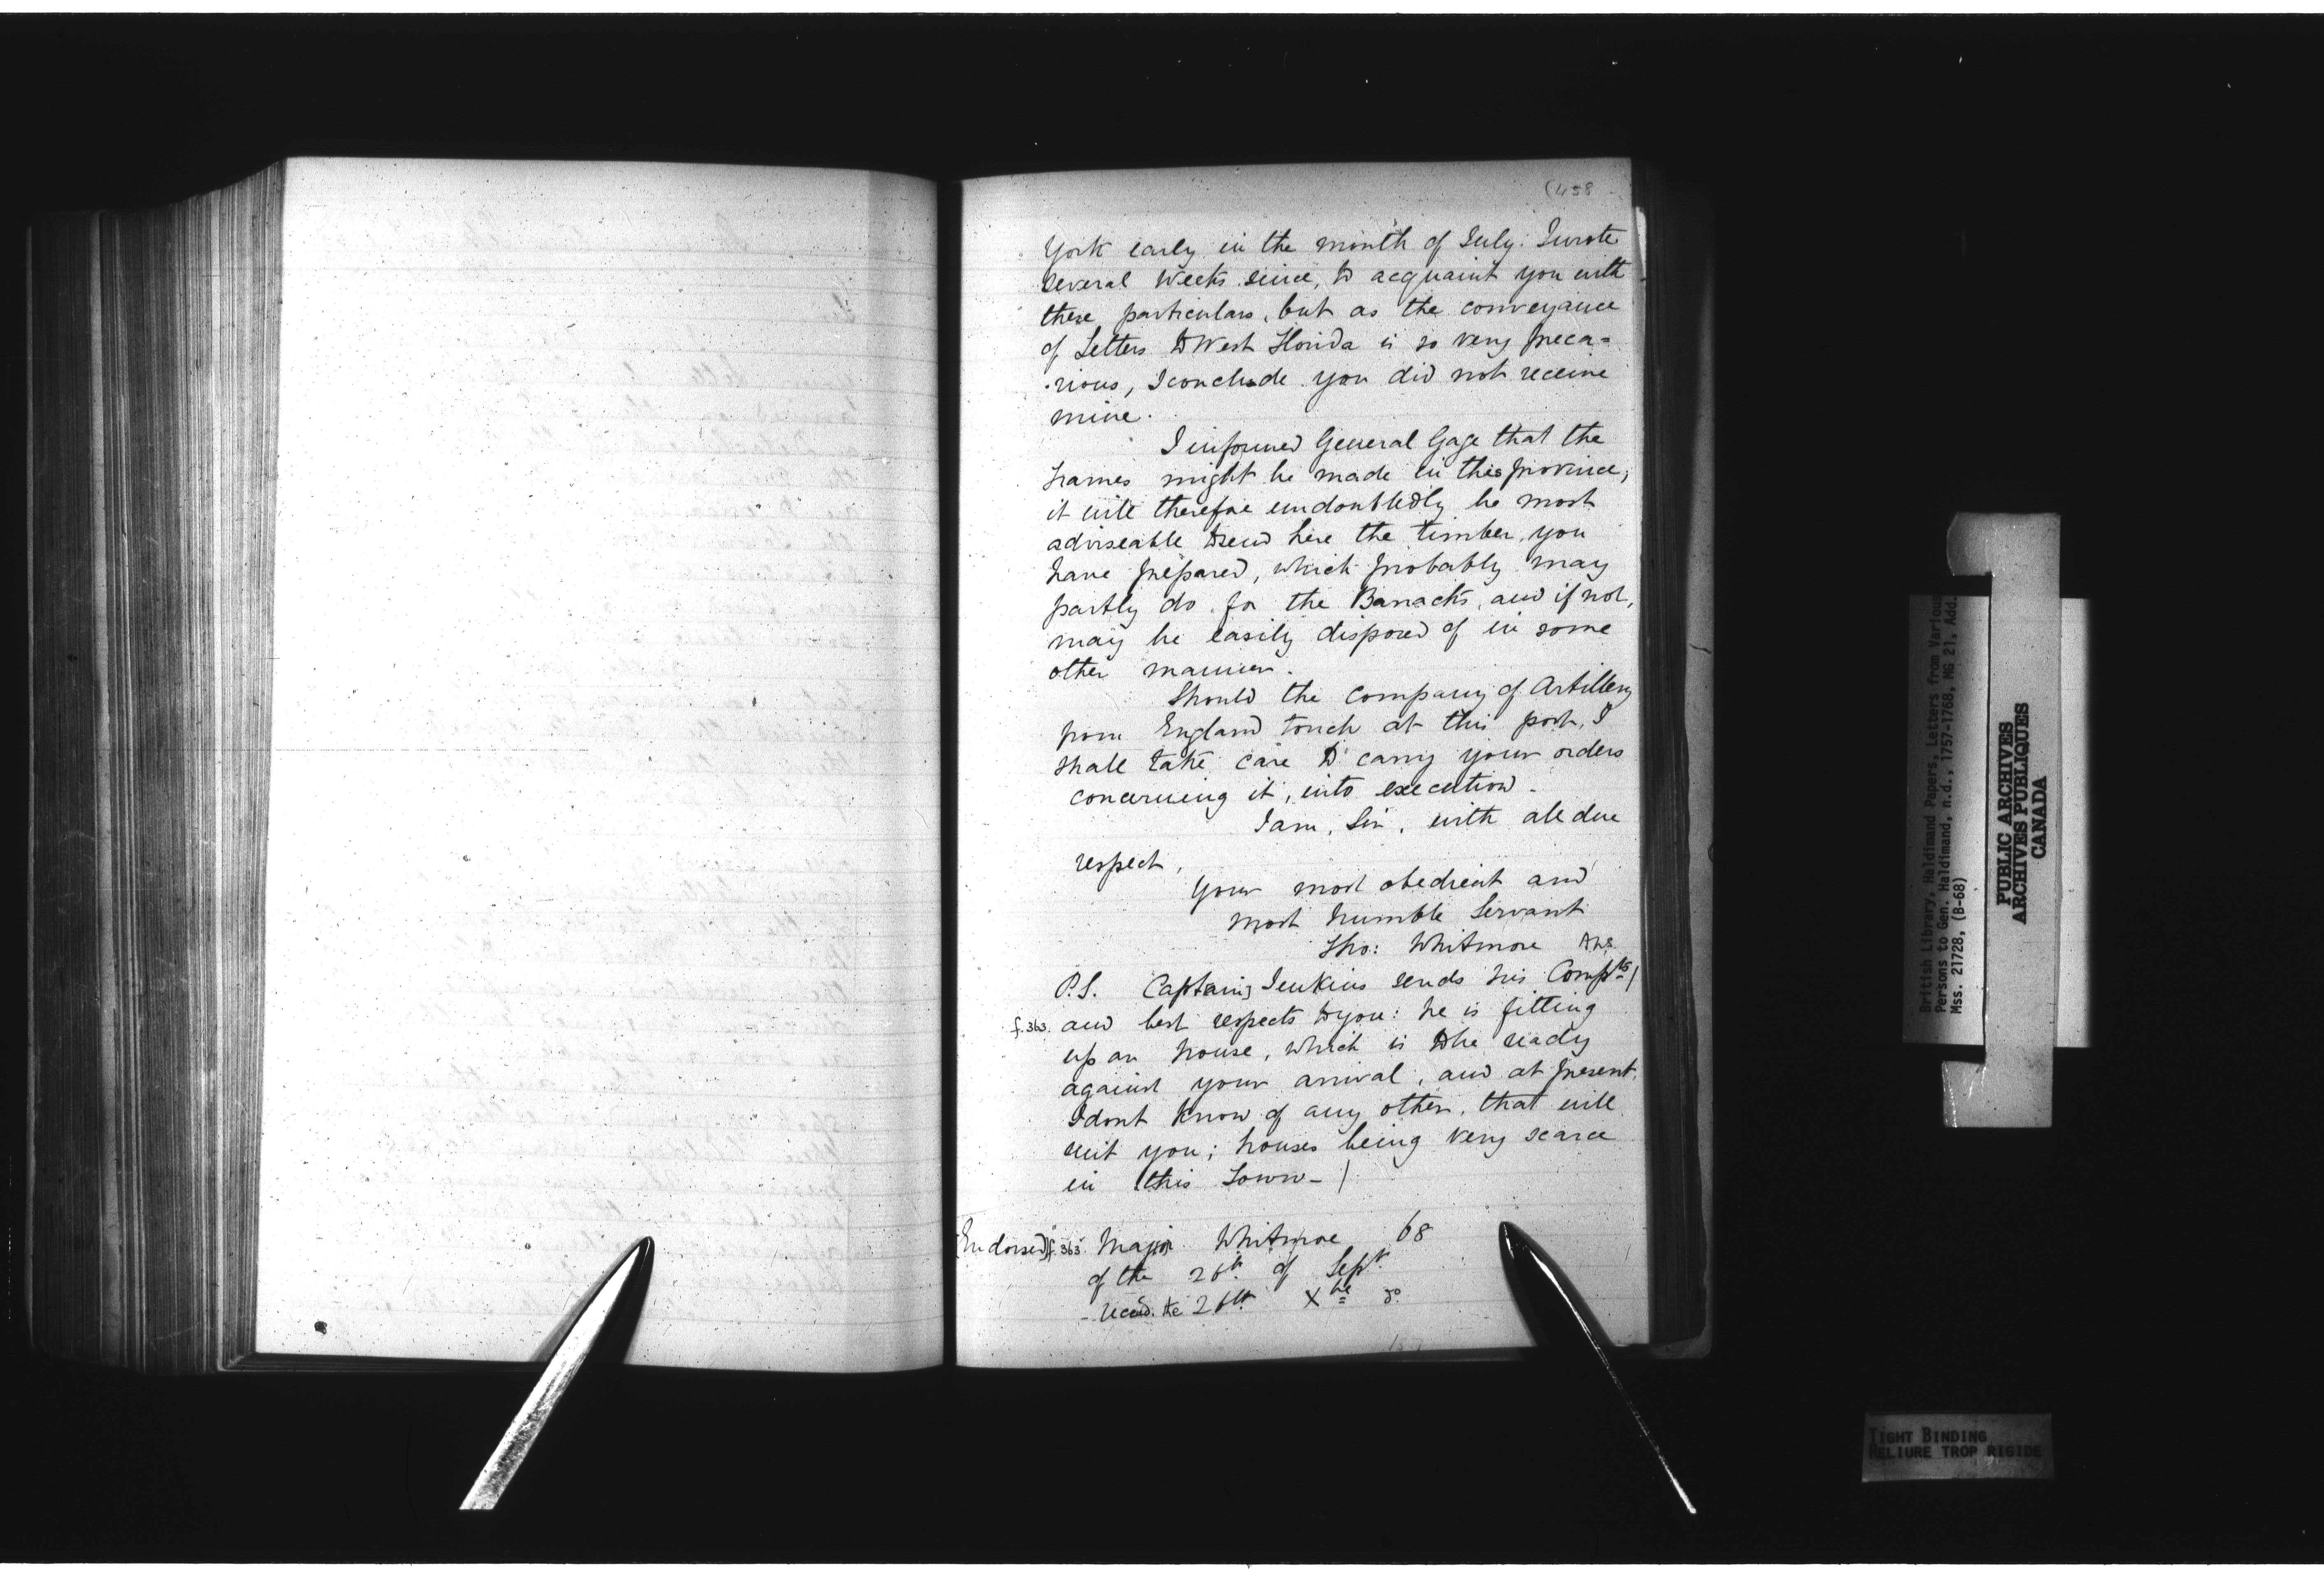 (458
York early in the month of July. I wrote
several weeks since, to acquaint you with
these particulars, but as the conveyance
of Letters to West Florida is so very preca=
-rious, I conclude you did not receive
mine.
I informed General Gage that the
frames might be made in this province,
it will therefore undoubtedly be most
adviseable to send here the timber, you
have prepared, which probably may
partly do for the Barracks, and if not,
may be easily disposed of in some
other manner.
Should the Company of Artillery
from England touch at this port, I
shall take care to carry your orders
concerning it, into execution.
I am, Sir, with all due
respect,
Your most obedient and
most humble Servant
Tho: Whitmore
P.S. Capt[ain] Jenkins sends his Compts/
f.363. and best respects to you: he is fitting
up an house, which is to be ready
against your arrival, and at present.
I dont know of any other, that will
suit you; houses being very scarce
in this Town-/
[Endorsed] f.363. Major Whitmore 68
of the 26th of Septr
- Recd. the 26th Xbe do
British Library, Haldimand Papers, Letters from Various
Persons to Gen. Haldimand, n.d., 1757-1768, MG 21, Add.
Mss. 21728, (B-68)
PUBLIC ARCHIVES
ARCHIVES PUBLIQUES
CANADA
TIGHT BINDING
RELIURE TROP RIGIDE